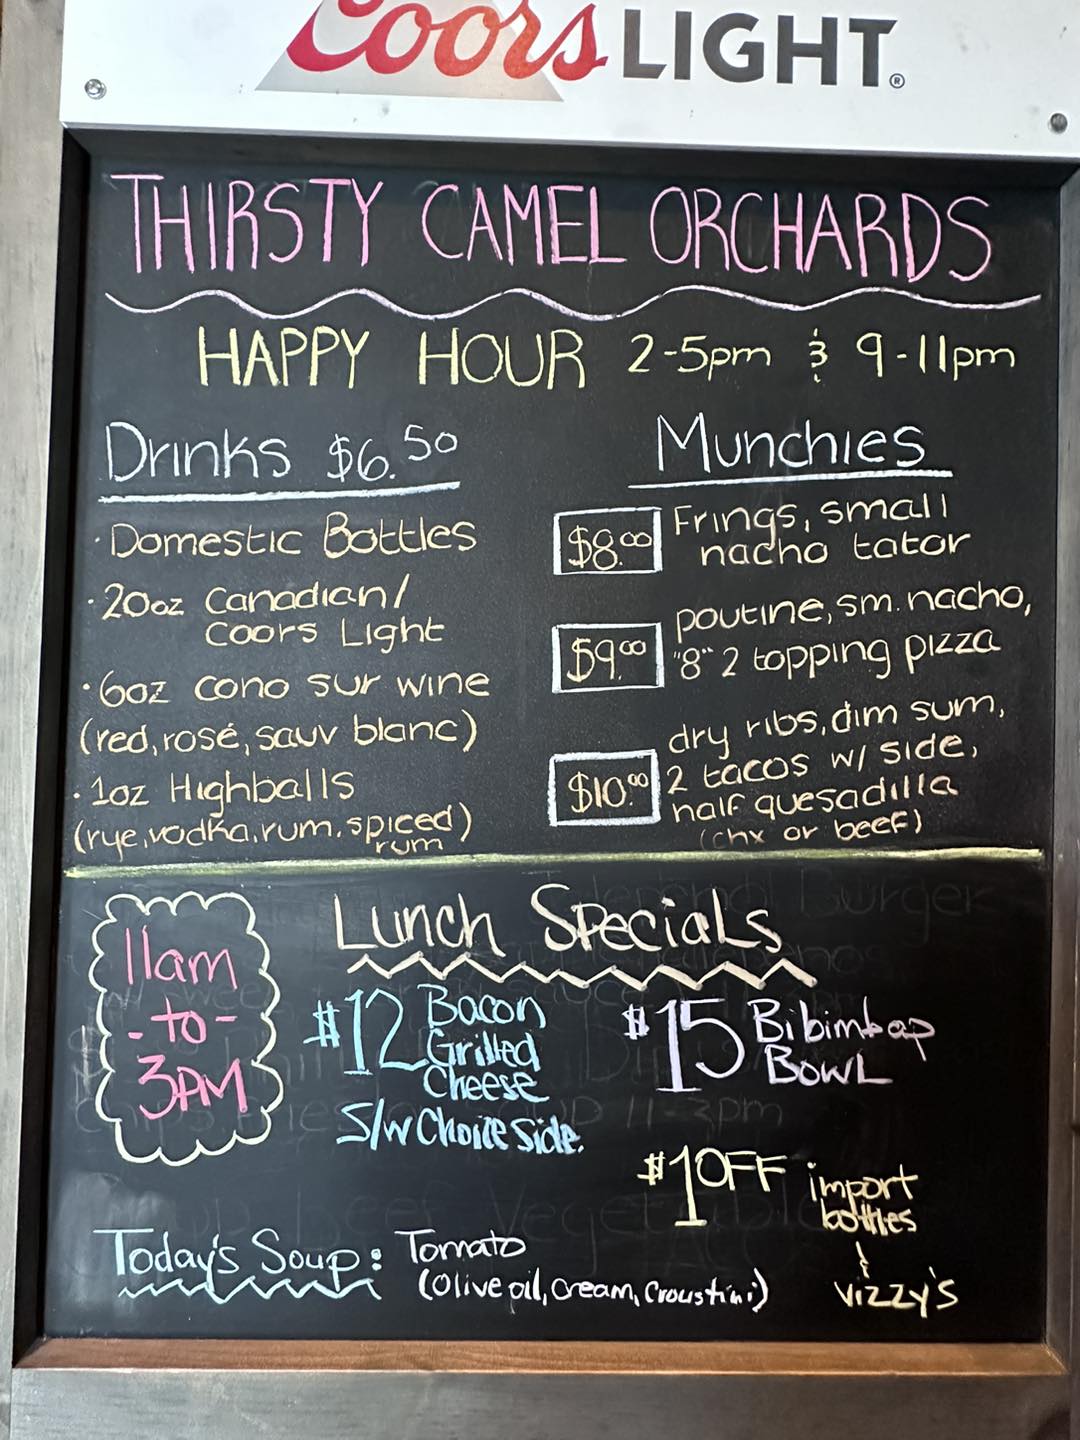 Coors LIGHT®
THIRSTY CAMEL ORCHARDS
HAPPY HOUR 2-5pm & 9-11pm
Drinks $6.50
· Domestic Bottles
· 20oz Canadian/
Coors Light
· 6oz cono sur wine
(red, rosé, sauv blanc)
· 1oz Highballs
(rye, vodka, rum, spiced
rum)
Munchies
$8.00 Frings, small
nacho tator
$9.00 poutine, sm. nacho,
"8" 2 topping pizza
$10.00 dry ribs, dim sum,
2 tacos w/ side,
half quesadilla
(chx or beef)
11am
-to-
3PM
Lunch Specials
$12 Bacon
Grilled
Cheese
S/w Choice Side.
$15 Bibimbap
BOWL
$1 OFF import
bottles
&
vizzy's
Today's Soup: Tomato
(Olive oil, Cream, Croustini)